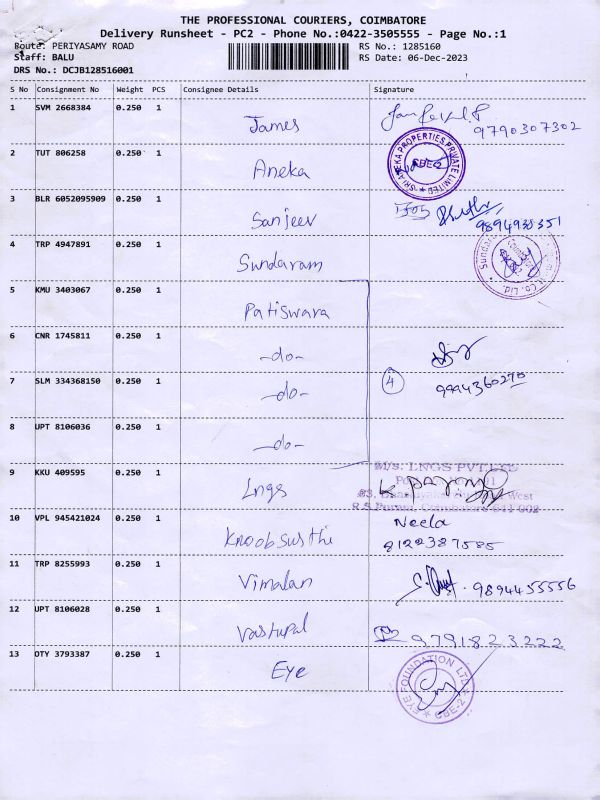 THE PROFESSIONAL COURIERS, COIMBATORE
Delivery Runsheet - PC2 - Phone No.:0422-3505555 - Page No.:1
Route: PERIYASAMY ROAD
RS No.: 1285160
Staff: BALU
RS Date: 06-Dec-2023
DRS No.: DCJB128516001
S No Consignment No Weight PCS Consignee Details Signature
1 SVM 2668384 0.250 1 James
9790307302
2 TUT 806258 0.250 1 Aneka
SRI ANEKA PROPERTIES PRIVATE LIMITED CBE-2
3 BLR 6052095909 0.250 1 Sanjeev
9894938351
4 TRP 4947891 0.250 1 Sundaram
Sundaram
5 KMU 3403067 0.250 1 Patiswara
6 CNR 1745811 0.250 1 -do-
7 SLM 334368150 0.250 1 -do- 4
9994360270
8 UPT 8106036 0.250 1 -do-
M/s. LNGS PVT LTD
9 KKU 409595 0.250 1 Lngs
West
R.S.Puram, Coimbatore 641 002
10 VPL 945421024 0.250 1 Knoobsusthi Neela
8122387585
11 TRP 8255993 0.250 1 Vimalan 9894455556
12 UPT 8106028 0.250 1 Vastupal 9791823222
13 DTY 3793387 0.250 1 Eye
EYE FOUNDATION LTD CBE-2